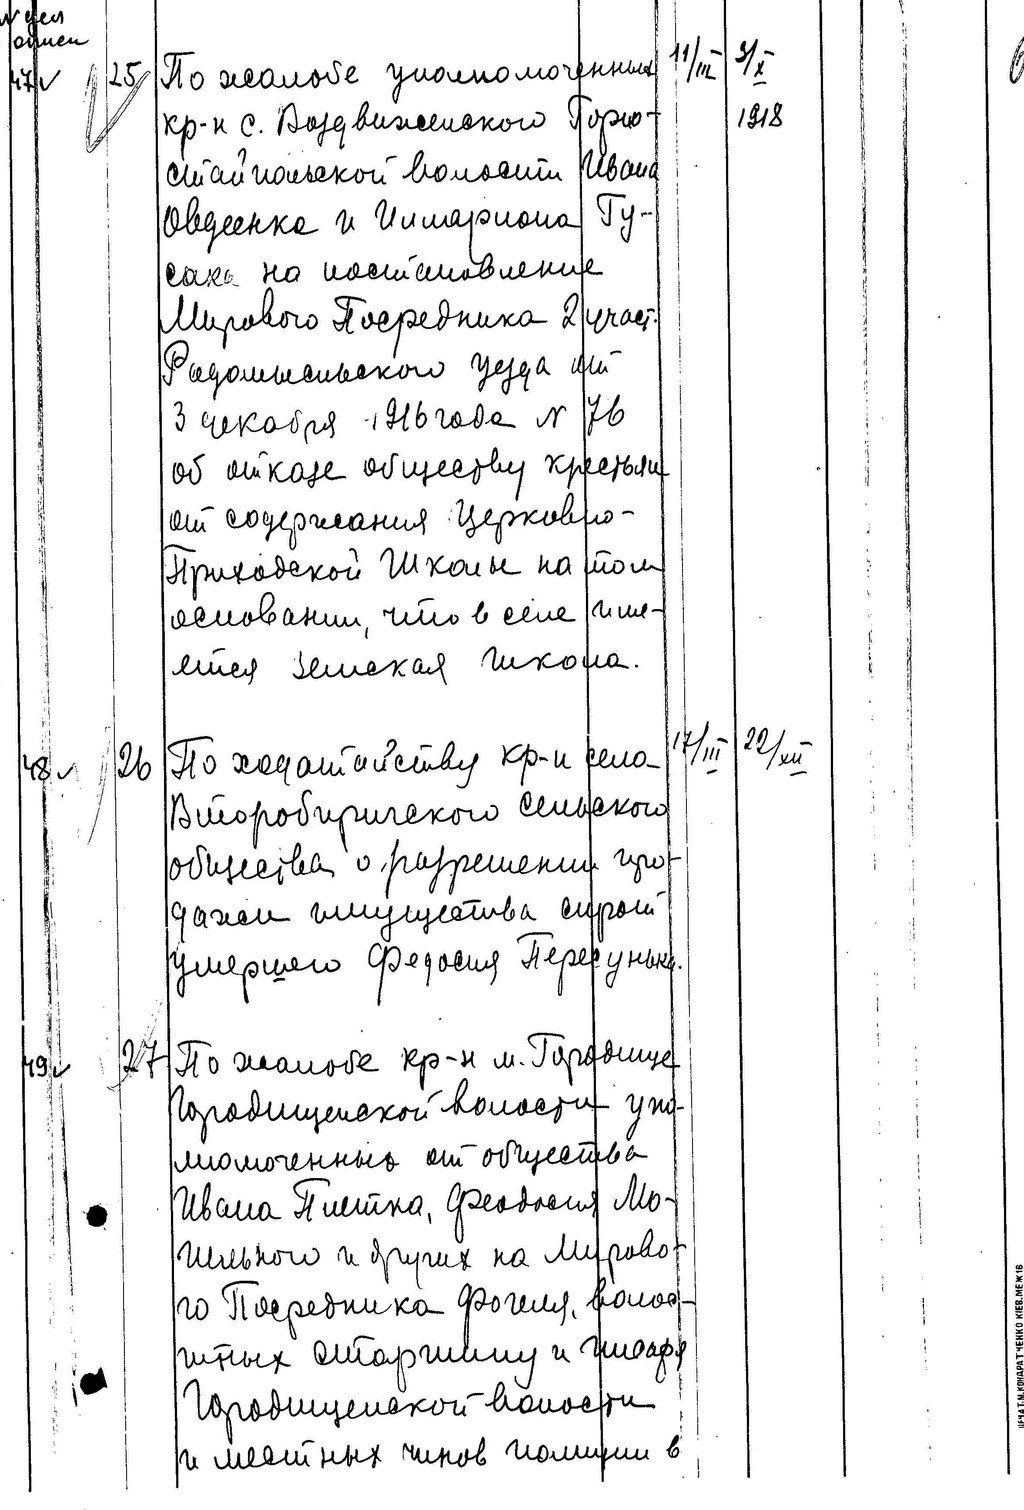 N дел
описи
47 25 По жалобе уполномоченных 11/III 3/X
кр-н с. Воздвиженского Горно- 1918
стайпольской волости Ивана
Овдеенка и Иллариона Гу-
сака на постановление
Мирового Посредника 2 участ.
Радомысльского уезда от
3 декабря 1916 года N 76
об отказе обществу крестьян
от содержания Церковно-
Приходской Школы на том
основании, что в селе име-
ется земская школа.
48 26 По ходатайству кр-н села 17/III 22/XII
Второбиричского сельского
общества о разрешении про-
дажи имущества сирот
умершего Федосия Пересунька.
49 27 По жалобе кр-н м. Городище
Городищенской волости упо-
лномоченных от общества
Ивана Плетка, Феодосия Мо-
гильного и других на Мирово-
го Посредника Фогеля, волос-
тных старшину и писаря
Городищенской волости
и местных чинов полиции в